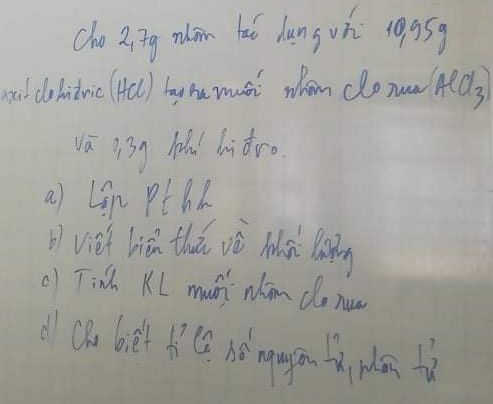 Cho 2,7g nhôm tác dụng với 10,95g
axit clohiđric (HCl) tạo ra muối nhôm clo rua (AlCl3)
và 0,3g khí hiđro.
a) Lập Pthh
b) Viết biểu thức về khối lượng
c) Tính KL muối nhôm clo rua
d) Cho biết tỉ lệ số nguyên tử, phân tử